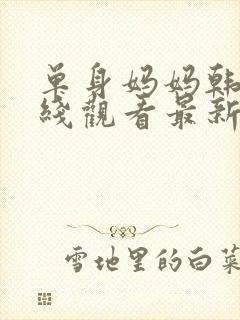 单身妈妈韩
綫觀看最新
雪地里的白菜